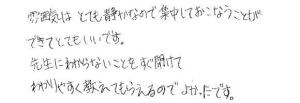 雰囲気は とても静かなので集中しておこなうことが
できてとてもいいです。
先生にわからないことをすぐ聞けて
わかりやすく教えてもらえるのでよかったです。